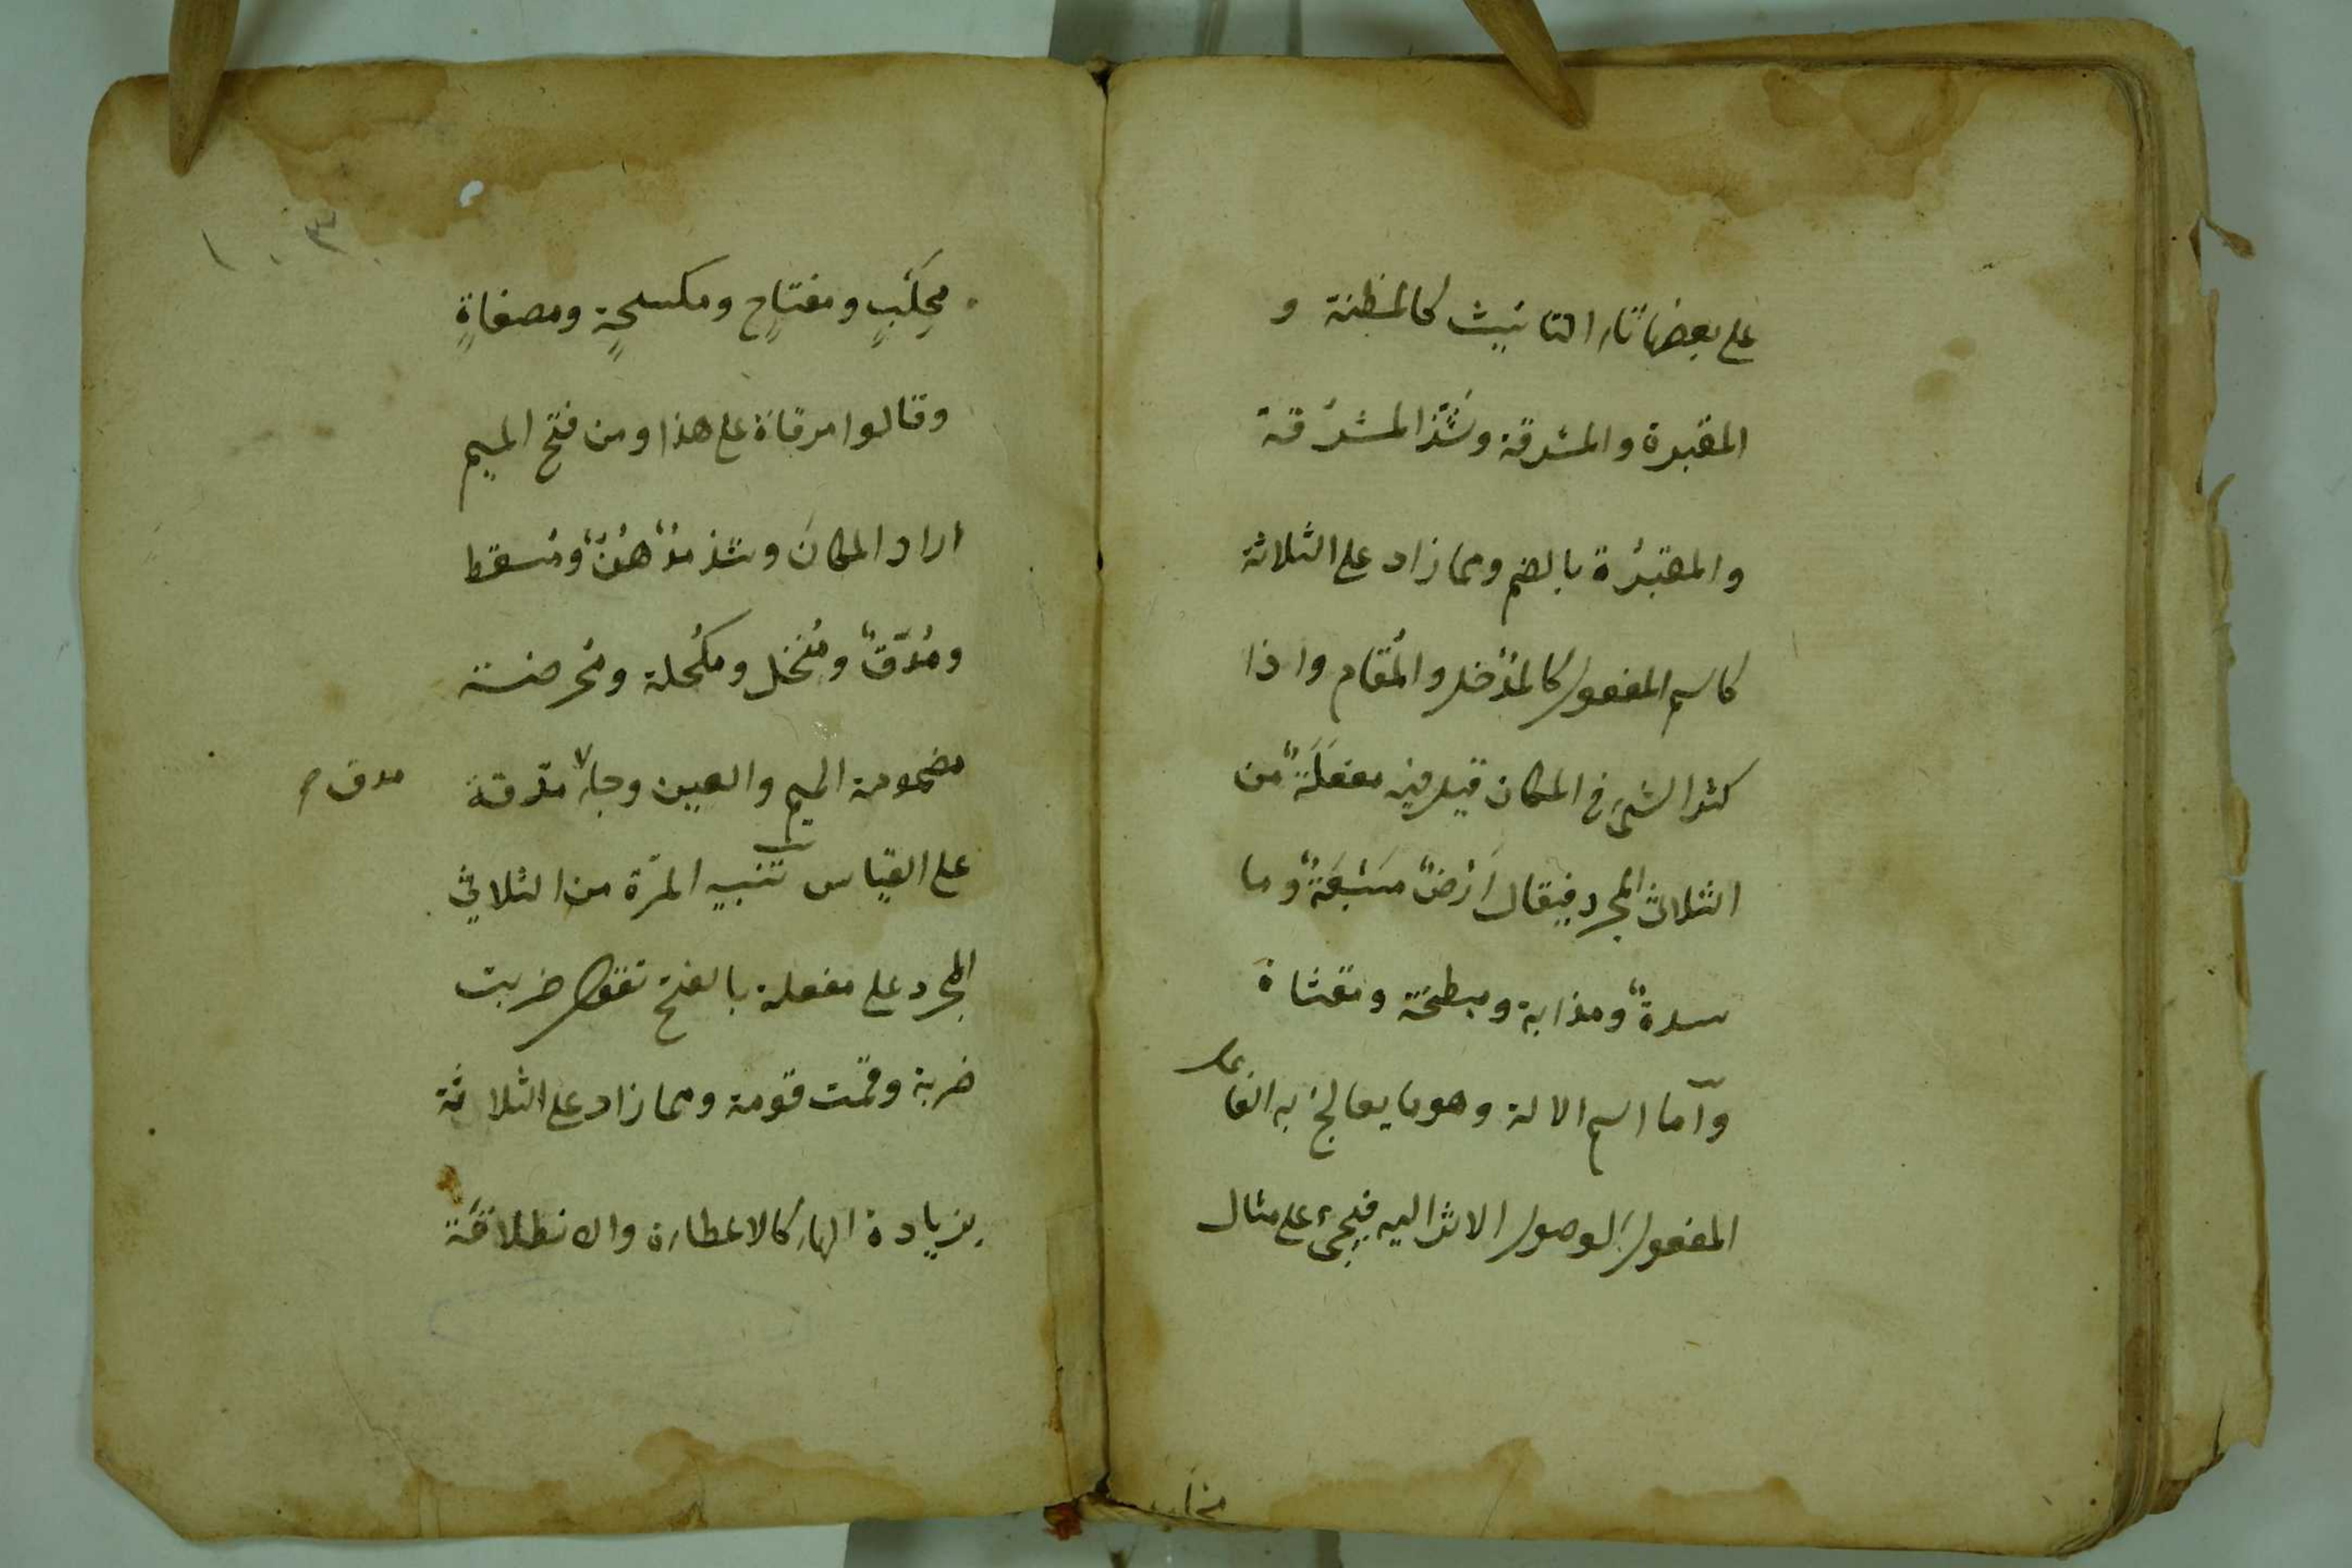 على بعضها تاء التانيث كالمظنة و
المقبرة والمشرقة وشَذّ المشرُقة
والمقبُرة بالضم ومما زاد على الثلاثة
كاسم المفعول كالمُدْخل والمُقام واذا
كثر الشىء فى المكان قيل فيه مفعَلَةٌ من
الثلاثى المجرد فيقال اَرْضٌ مَسْبَعَةٌ وما
سدةٌ ومذابة ومبطخة ومقثاة
وآما اسم الالة وهو ما يعالج به الفاعل
المفعولَ لوصول الاثر اليه فيجىء على مثال
محلب
١٠٣
مِحلَبٍ ومفتاحٍ ومكسحةٍ ومصفاةٍ
وقالوا مرقاة على هذا ومن فتح الميم
اراد المكانَ وشذ مُدْهُنٌ ومُسقط
ومُدَقٌّ ومُنْخل ومُكحُلة ومُحرضة
مضمومة الميم والعين وجاء مدقة
مدق م
على القياس تنبيه المرّة من الثلاثى
المجرد على مفعلة بالفتح تقول ضربت
ضربة وقمت قومة ومما زاد على الثلاثة
بزيادة الهاء كالاعطاءة والانطلاقة